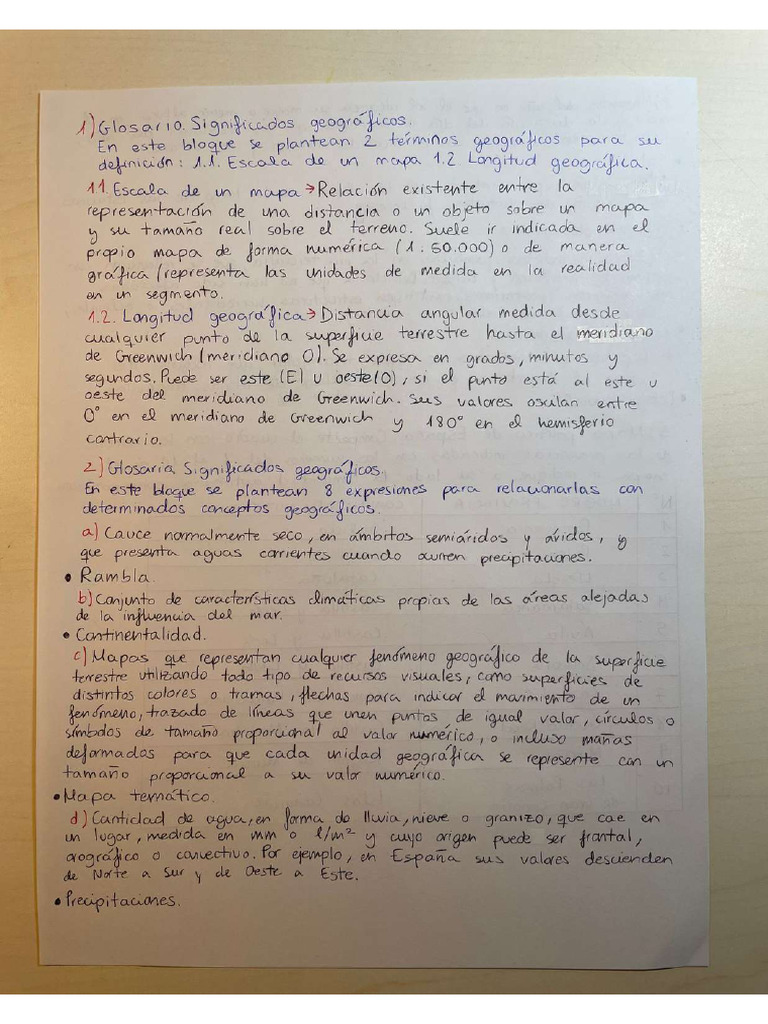 1) Glosario. Significados geográficos.
En este bloque se plantean 2 términos geográficos para su
definición: 1.1. Escala de un mapa 1.2 Longitud geográfica.
1.1. Escala de un mapa → Relación existente entre la
representación de una distancia o un objeto sobre un mapa
y su tamaño real sobre el terreno. Suele ir indicada en el
propio mapa de forma numérica (1:50.000) o de manera
gráfica (representa las unidades de medida en la realidad
en un segmento.
1.2. Longitud geográfica → Distancia angular medida desde
cualquier punto de la superficie terrestre hasta el meridiano
de Greenwich (meridiano 0). Se expresa en grados, minutos y
segundos. Puede ser este (E) u oeste (O), si el punto está al este u
oeste del meridiano de Greenwich. Sus valores osculan entre
0° en el meridiano de Greenwich y 180° en el hemisferio
contrario.
2) Glosario. Significados geográficos.
En este bloque se plantean 8 expresiones para relacionarlas con
determinados conceptos geográficos.
a) Cauce normalmente seco, en ámbitos semiáridos y áridos, y
que presenta aguas corrientes cuando ocurren precipitaciones.
• Rambla.
b) Conjunto de características climáticas propias de las áreas alejadas
de la influencia del mar.
• Continentalidad.
c) Mapas que representan cualquier fenómeno geográfico de la superficie
terrestre utilizando todo tipo de recursos visuales, como superficies de
distintos colores o tramas, flechas para indicar el movimiento de un
fenómeno, trazado de líneas que unen puntos de igual valor, círculos o
símbolos de tamaño proporcional al valor numérico, o incluso mañas
deformados para que cada unidad geográfica se represente con un
tamaño proporcional a su valor numérico.
• Mapa temático.
d) Cantidad de agua, en forma de lluvia, nieve o granizo, que cae en
un lugar, medida en mm o l/m² y cuyo origen puede ser frontal,
orográfico o convectivo. Por ejemplo, en España sus valores descienden
de Norte a Sur y de Oeste a Este.
• Precipitaciones.